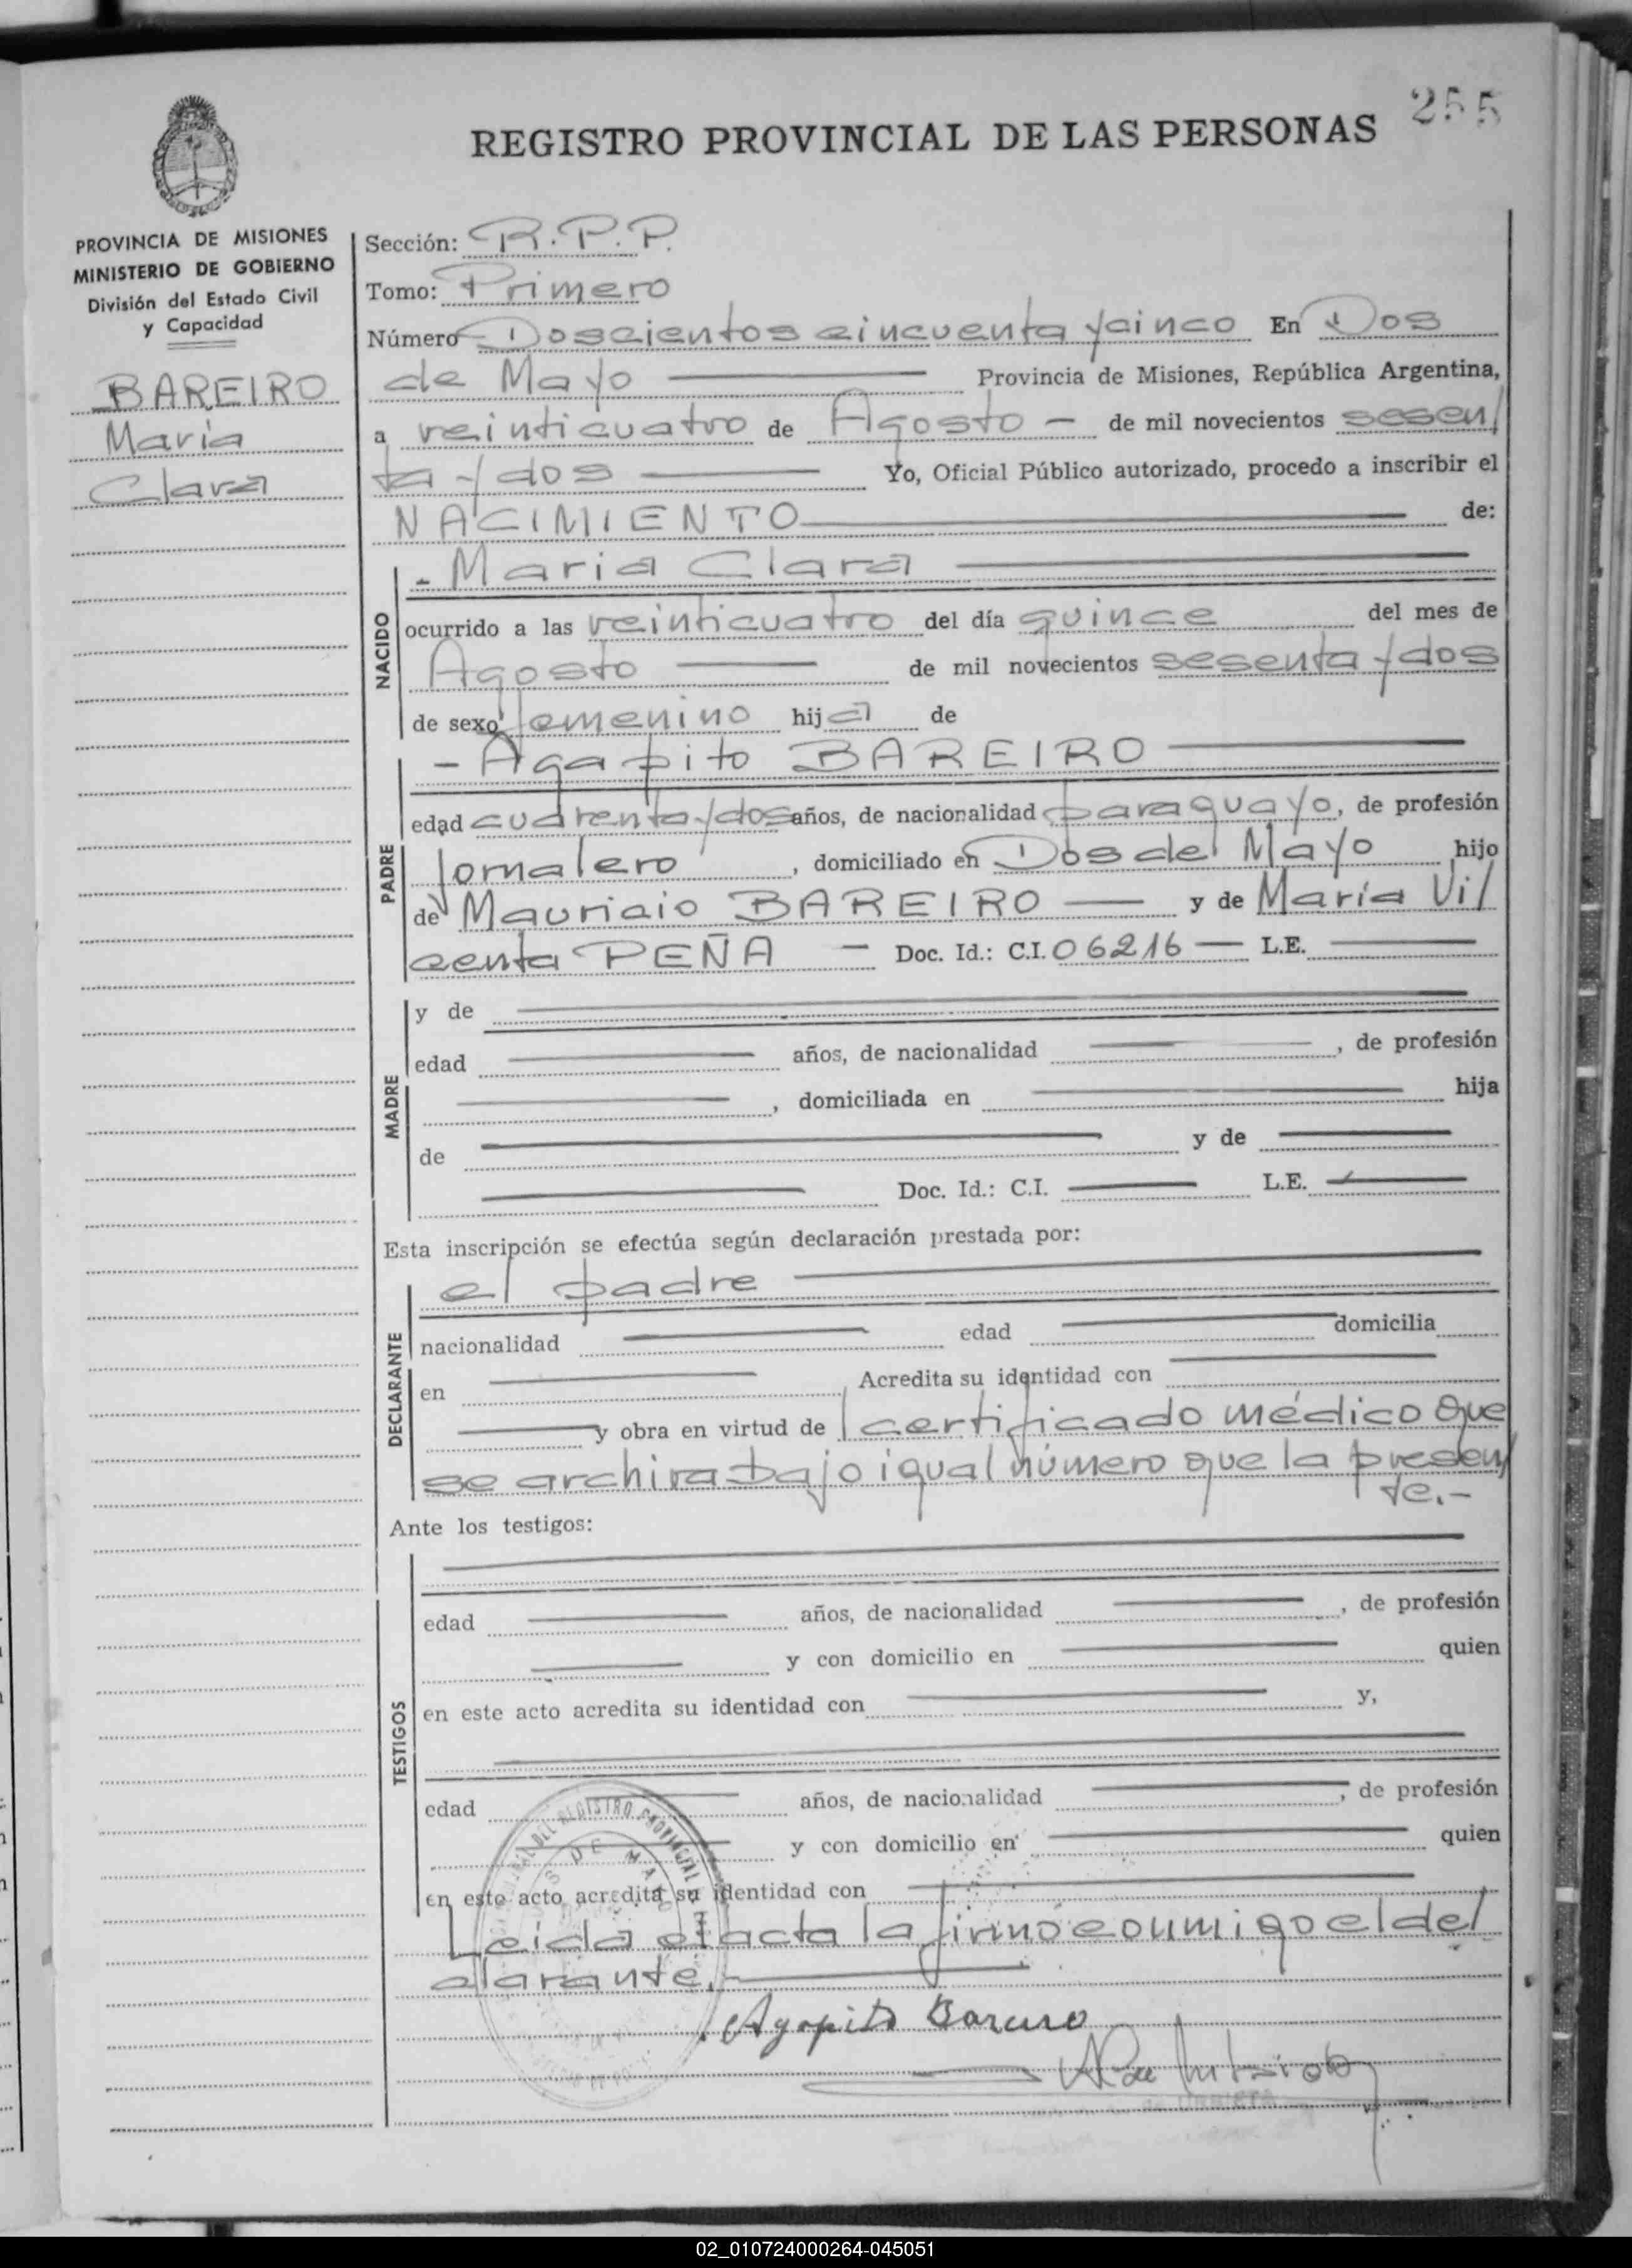 255
REGISTRO PROVINCIAL DE LAS PERSONAS
PROVINCIA DE MISIONES
MINISTERIO DE GOBIERNO
División del Estado Civil
y Capacidad
BAREIRO
María
Clara
Sección: R.P.P.
Tomo: Primero
Número Doscientos cincuenta y cinco En Dos
de Mayo Provincia de Misiones, República Argentina,
a veinticuatro de Agosto - de mil novecientos sesen/
ta y dos Yo, Oficial Público autorizado, procedo a inscribir el
NACIMIENTO de:
- Maria Clara
NACIDO
ocurrido a las veinticuatro del día quince del mes de
Agosto de mil novecientos sesenta y dos
de sexo femenino hija de
- Agapito BAREIRO
PADRE
edad cuarenta y dos años, de nacionalidad paraguayo, de profesión
Jornalero, domiciliado en Dos de Mayo hijo
de Mauricio BAREIRO y de María Vi/
centa PEÑA - Doc. Id.: C.I. 06216 L.E.
MADRE
y de
edad años, de nacionalidad , de profesión
, domiciliada en hija
de y de
Doc. Id.: C.I. L.E.
Esta inscripción se efectúa según declaración prestada por:
el padre
DECLARANTE
nacionalidad edad domicilia
en Acredita su identidad con
y obra en virtud de certificado médico que
se archiva bajo igual número que la presen/
te.-
Ante los testigos:
TESTIGOS
edad años, de nacionalidad , de profesión
y con domicilio en quien
en este acto acredita su identidad con y,
edad años, de nacionalidad , de profesión
y con domicilio en quien
en este acto acredita su identidad con
DEL REGISTRO PROVINCIAL
DOS DE MAYO
Leida el acta la firmó conmigo el de/
clarante.-
Agapito Bareiro
02_010724000264-045051